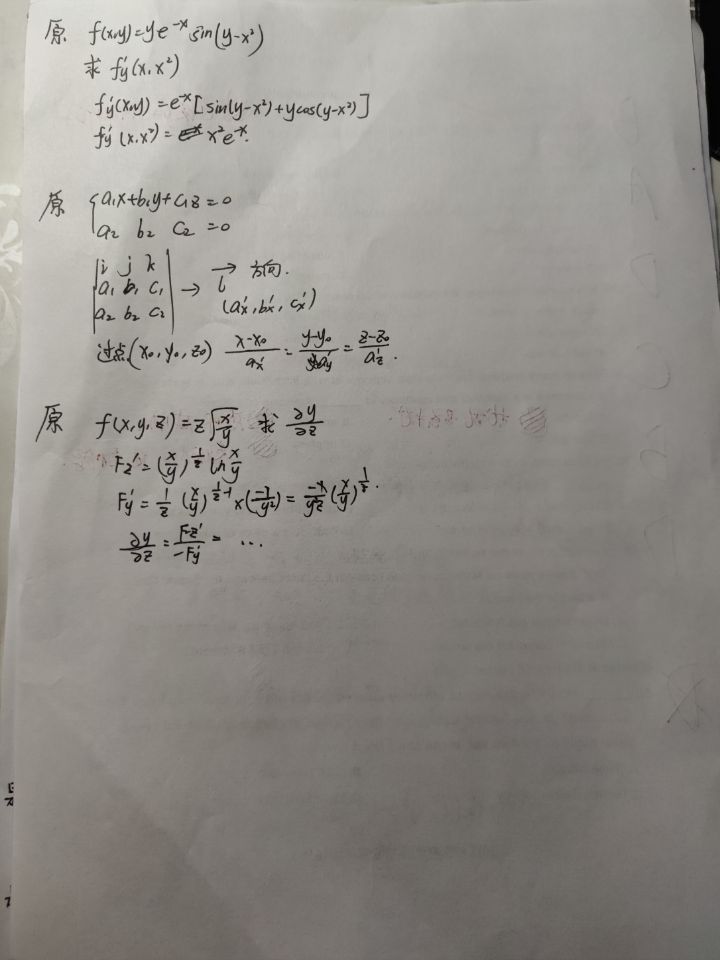 原 f(x,y)=ye^{-x} sin(y-x²)
求 f'y(x,x²)
f'y(x,y)=e^{-x}[sin(y-x²)+ycos(y-x²)]
f'y(x,x²)= x²e^{-x}.
原 {a₁x+b₁y+c₁z=0
a₂ b₂ c₂ =0
|i j k|
|a₁ b₁ c₁| → l 方向.
|a₂ b₂ c₂| (a'x, b'x, c'x)
过点(x₀,y₀,z₀) (x-x₀)/a'x = (y-y₀)/a'y = (z-z₀)/a'z.
原 f(x,y,z)= ᶻ√(x/y) 求 ∂y/∂z
Fz'=(x/y)^{1/z} ln x/y
Fy'=1/z (x/y)^{1/z-1}×(-x/y²)= -x/y²z (x/y)^{1/z}.
∂y/∂z = Fz'/-Fy' = ...